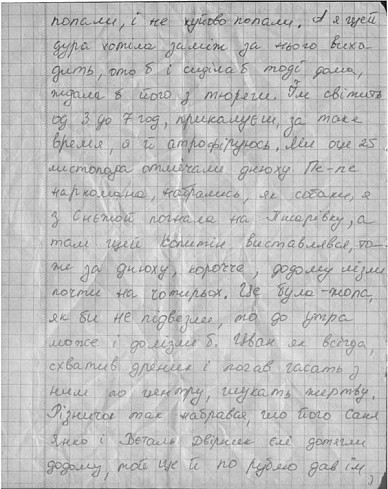 попали, і не хуйово попали. А я щей
дура хотіла заміж за нього вихо-
дить, ото б і сиділа б тоді дома,
ждала б його з тюряги. Їм світить
од 3 до 7 год, прикалуєш, за таке
врємя, я й атрофіруюсь. Ми оце 25
листопада отмєчали днюху Пє-пє
наркомана, набрались, як собаки, я
з Снєжой погнала на Писарівку, а
там цей Копитін виставлявся, то-
же за днюху, корочче, додому лізли
почті на чотирьох. Це було - жопа,
як би не підвезли, то до утра
може і долізли б. Іван як всєгда,
схватив дрючик і почав гасать з
ним по центру, шукать жертву.
Різничок так набрався, що його Саня
Янко і Віталь Двірник єлі дотягли
додому, тобі ще й по рублю дав їм,